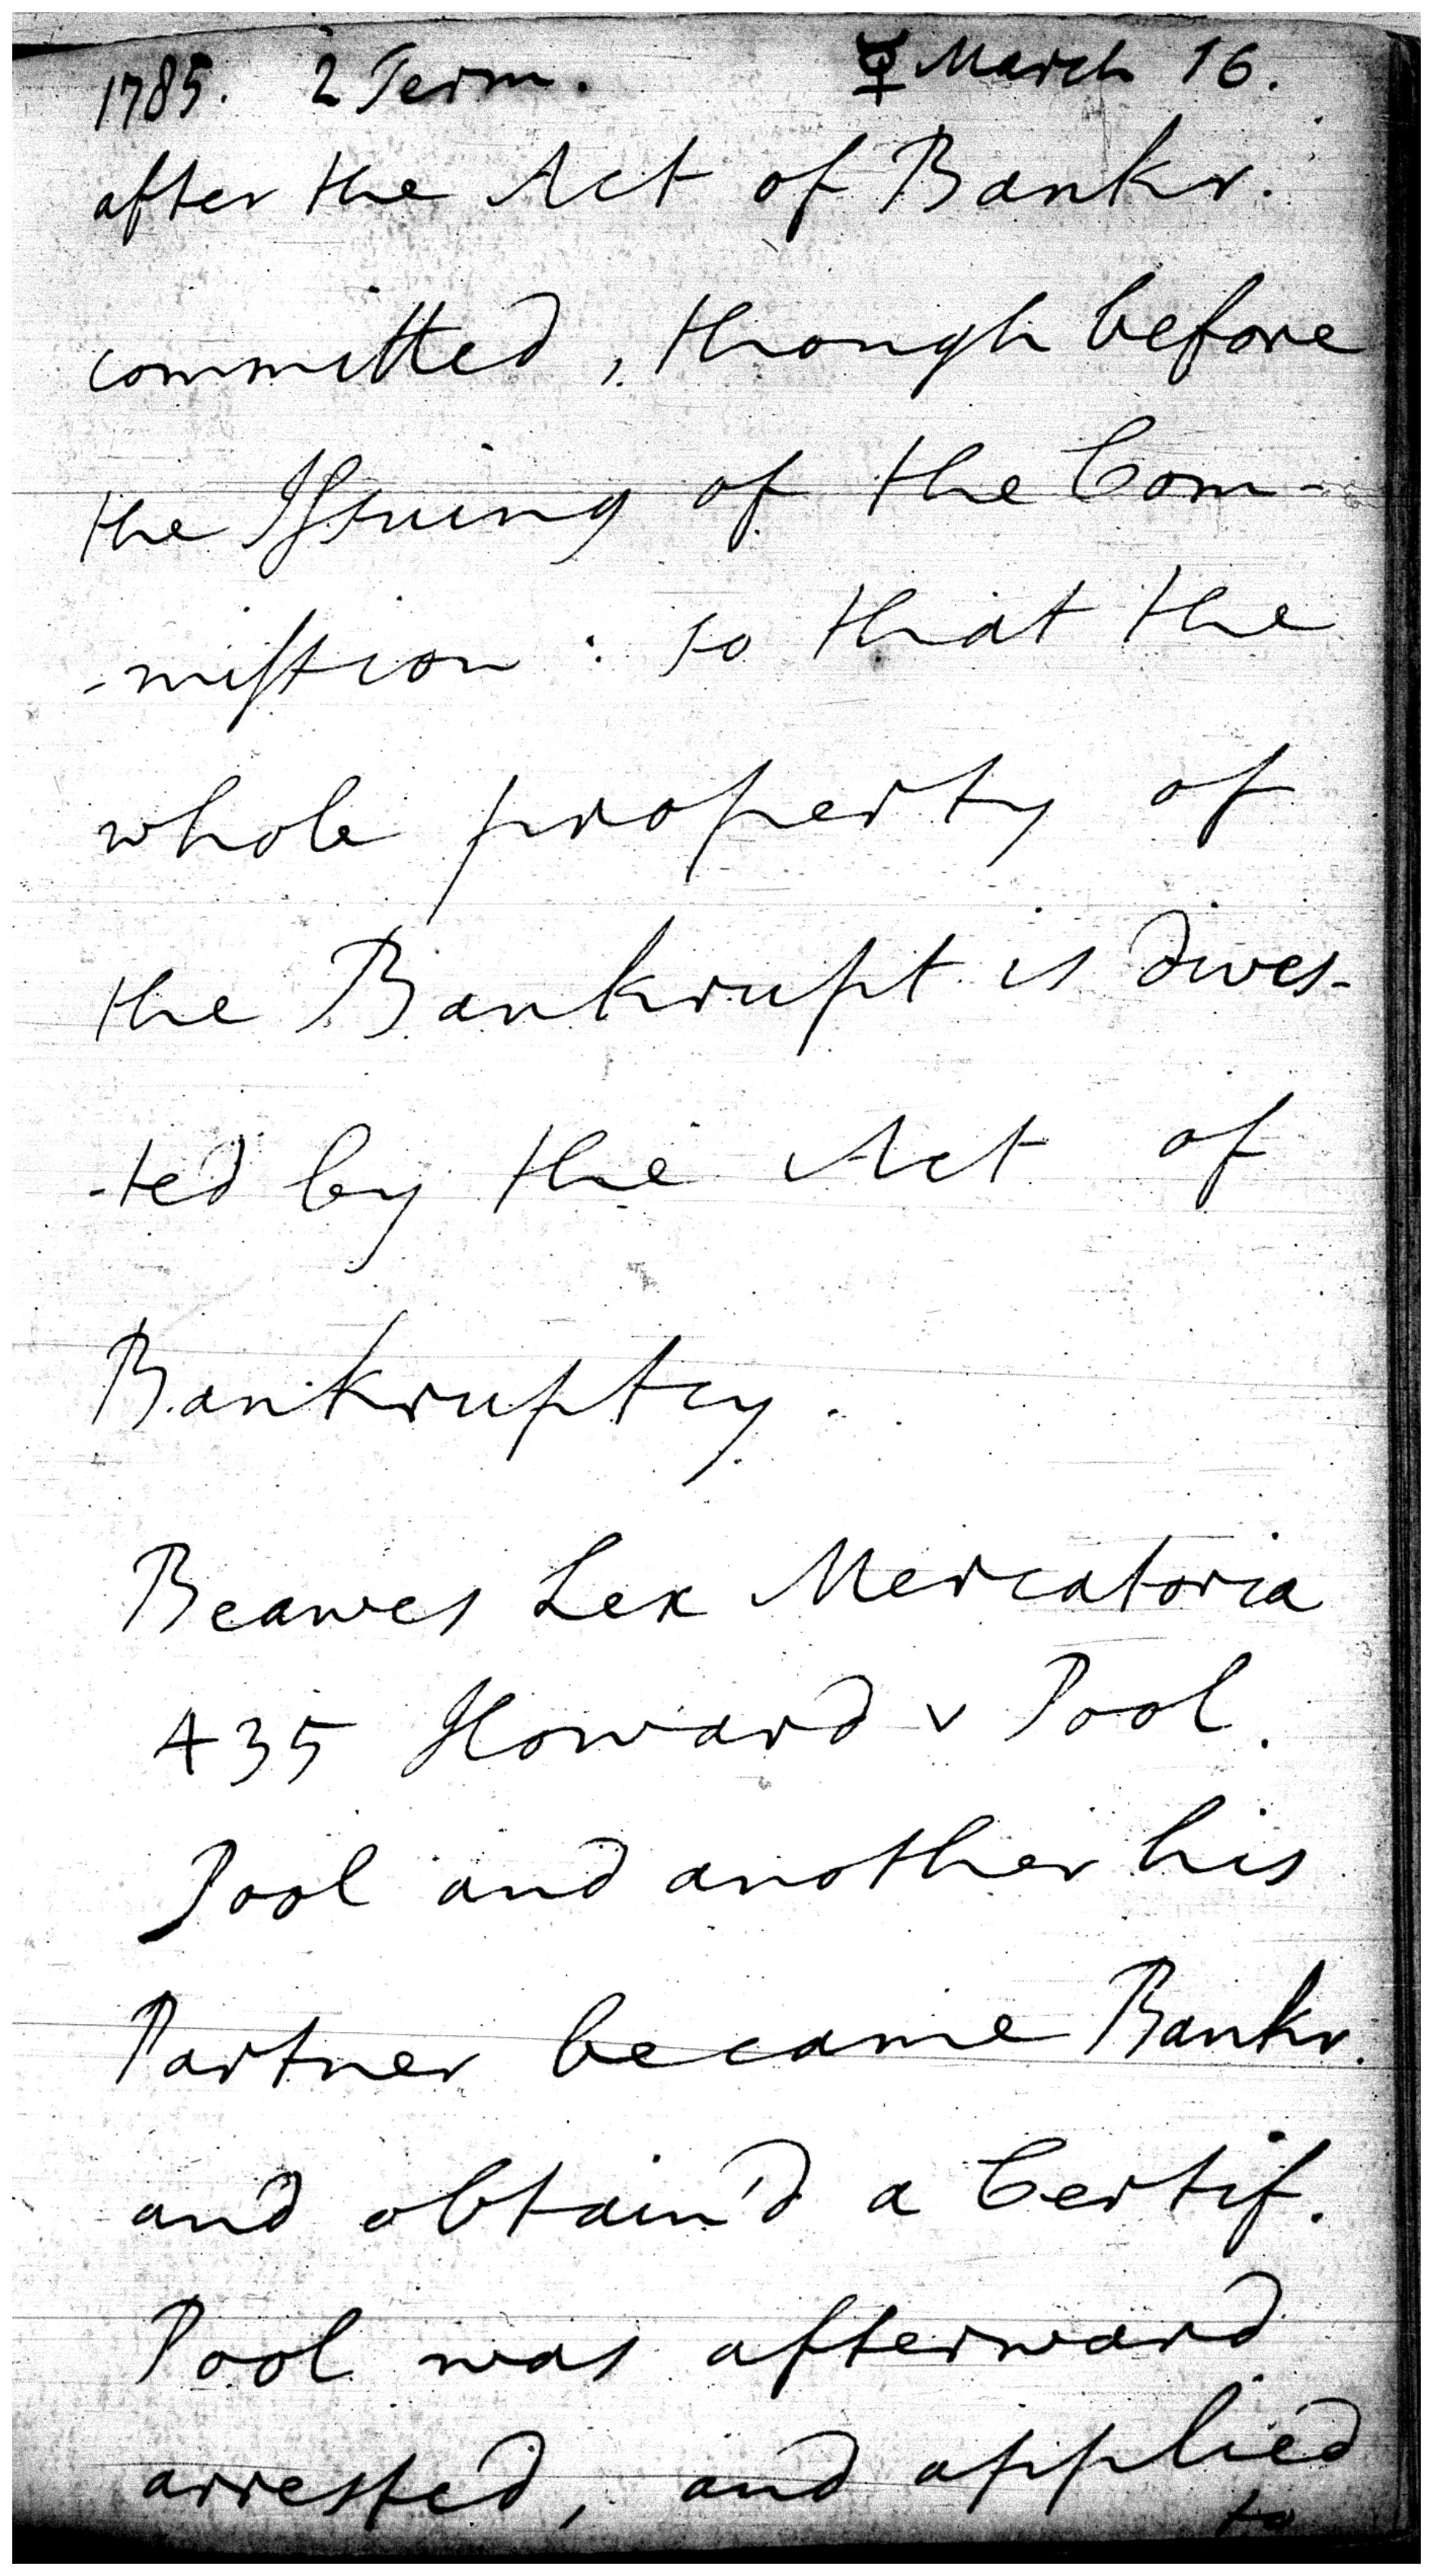 1785. 2 Term. ☿ March 16.
after the Act of Bankr.
committed, though before
the Iſsuing of the Com-
-miſsion: so that the
whole property of
the Bankrupt is dives-
-ted by the Act of
Bankruptcy.
Beawes Lex Mercatoria
435 Howard v Pool.
Pool and another his
Partner became Bankr.
and obtain'd a Certif.
Pool was afterward
arrested, and applied
to